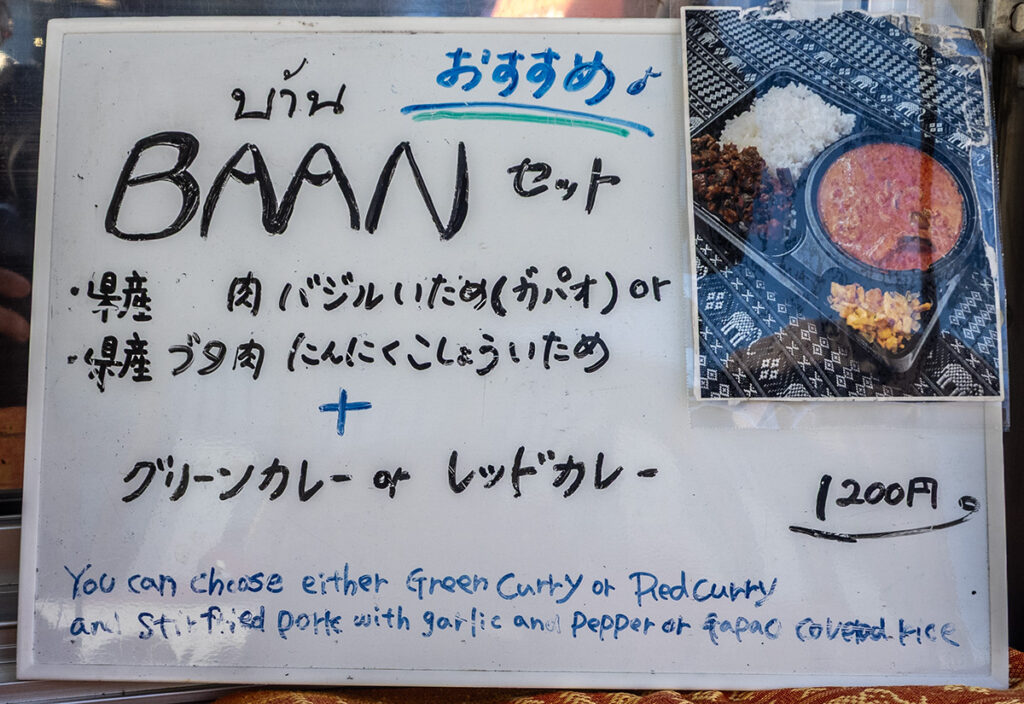 おすすめ♪
บ้าน
BAAN セット
・県産 肉 バジルいため(ガパオ) or
・県産 ブタ肉 にんにくこしょういため
+
グリーンカレー or レッドカレー
1200円。
You can choose either Green Curry or Red curry
and stir fried pork with garlic and pepper or gapao covered rice